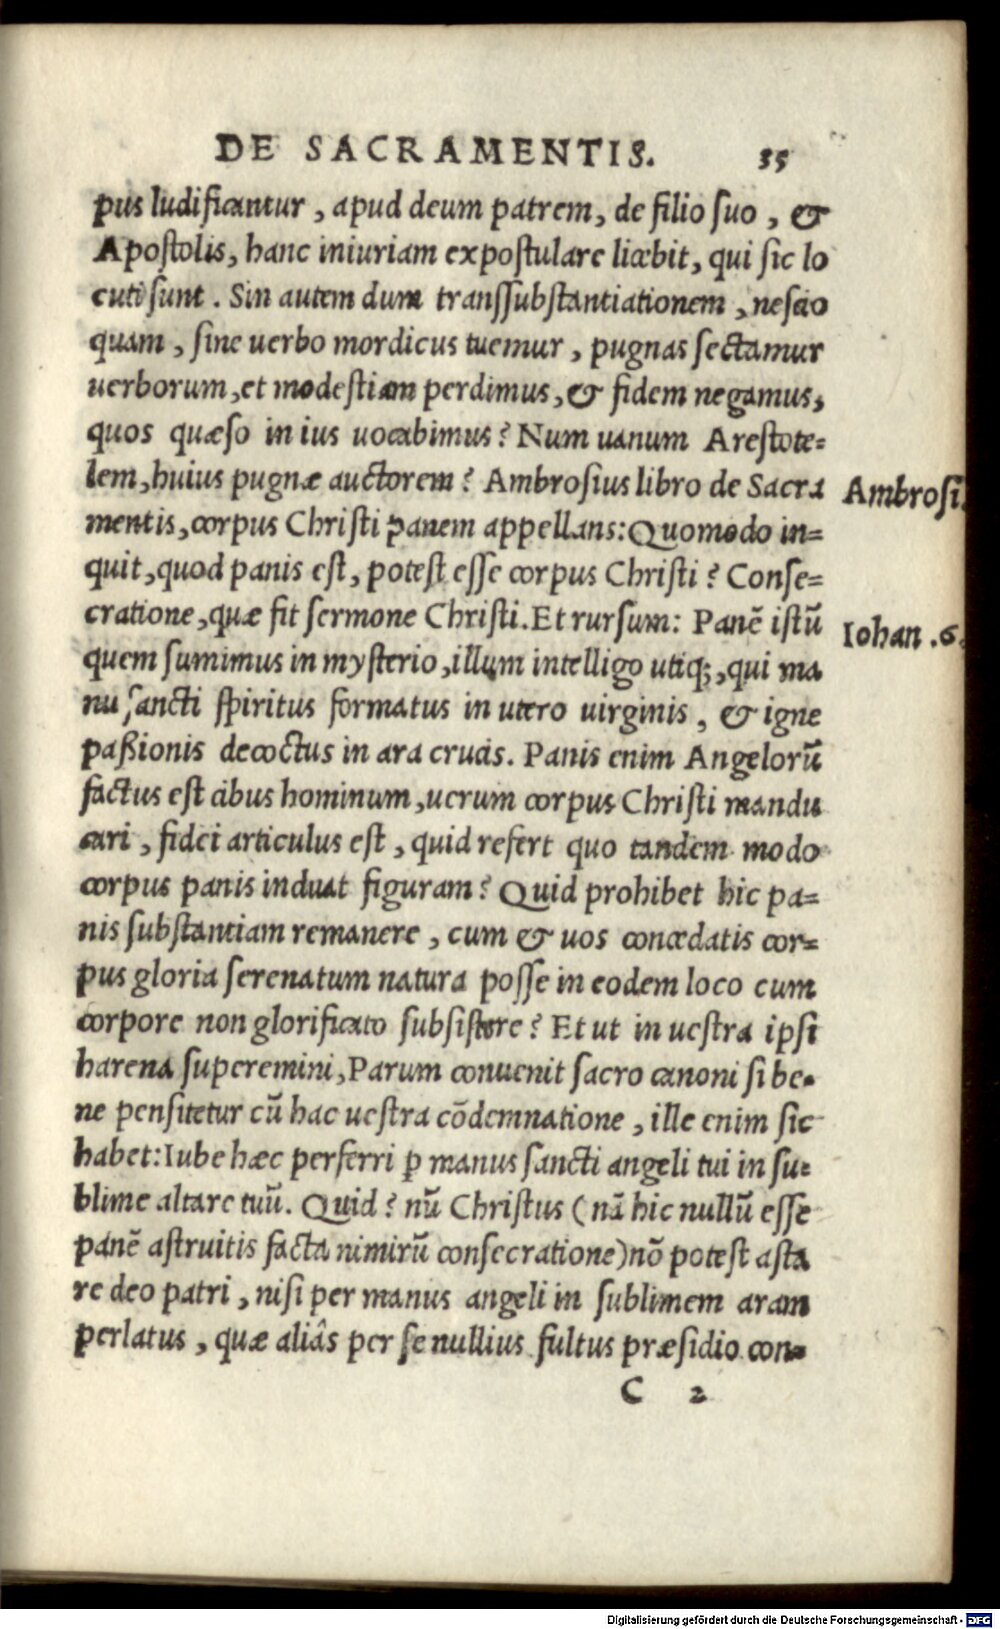 DE SACRAMENTIS. 35
pus ludificantur, apud deum patrem, de filio suo, &
Apostolis, hanc iniuriam expostulare licebit, qui sic lo
cuti sunt. Sin autem dum transsubstantiationem, nescio
quam, sine uerbo mordicus tuemur, pugnas sectamur
uerborum, et modestiam perdimus, & fidem negamus,
quos quæso in ius uocabimus? Num uanum Arestote=
lem, huius pugnæ auctorem? Ambrosius libro de Sacra
Ambrosi.
mentis, corpus Christi panem appellans: Quomodo in=
quit, quod panis est, potest esse corpus Christi? Conse=
cratione, quæ fit sermone Christi. Et rursum: Panē istū
Iohan.6.
quem sumimus in mysterio, illum intelligo utiq;, qui ma
nu sancti spiritus formatus in utero uirginis, & igne
paßionis decoctus in ara crucis. Panis enim Angelorū
factus est cibus hominum, uerum corpus Christi mandu
cari, fidei articulus est, quid refert quo tandem modo
corpus panis induat figuram? Quid prohibet hic pa=
nis substantiam remanere, cum & uos concedatis cor=
pus gloria serenatum natura posse in eodem loco cum
corpore non glorificato subsistere? Et ut in uestra ipsi
harena superemini, Parum conuenit sacro canoni si be=
ne pensitetur cū hac uestra cōdemnatione, ille enim sic
habet: Iube hæc perferri ꝑ manus sancti angeli tui in su=
blime altare tuū. Quid? nū Christus (nā hic nullū esse
panē astruitis facta nimirū consecratione) nō potest asta
re deo patri, nisi per manus angeli in sublimem aram
perlatus, quæ aliâs per se nullius fultus præsidio con=
C 2
Digitalisierung gefördert durch die Deutsche Forschungsgemeinschaft - DFG